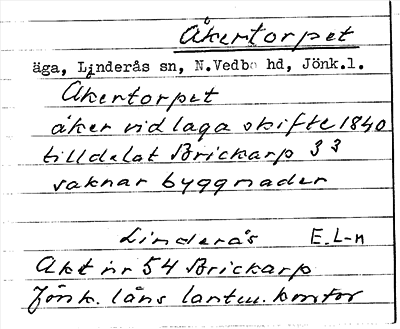 Åkertorpet
äga, Linderås sn, N.Vedbo hd, Jönk.l.
Åkertorpet
åker vid laga skifte 1840
tilldelat Brickarp 3 3
saknar byggnader
Linderås E.L-n
Akt nr 54 Brickarp
Jönk. läns lantm. kontor